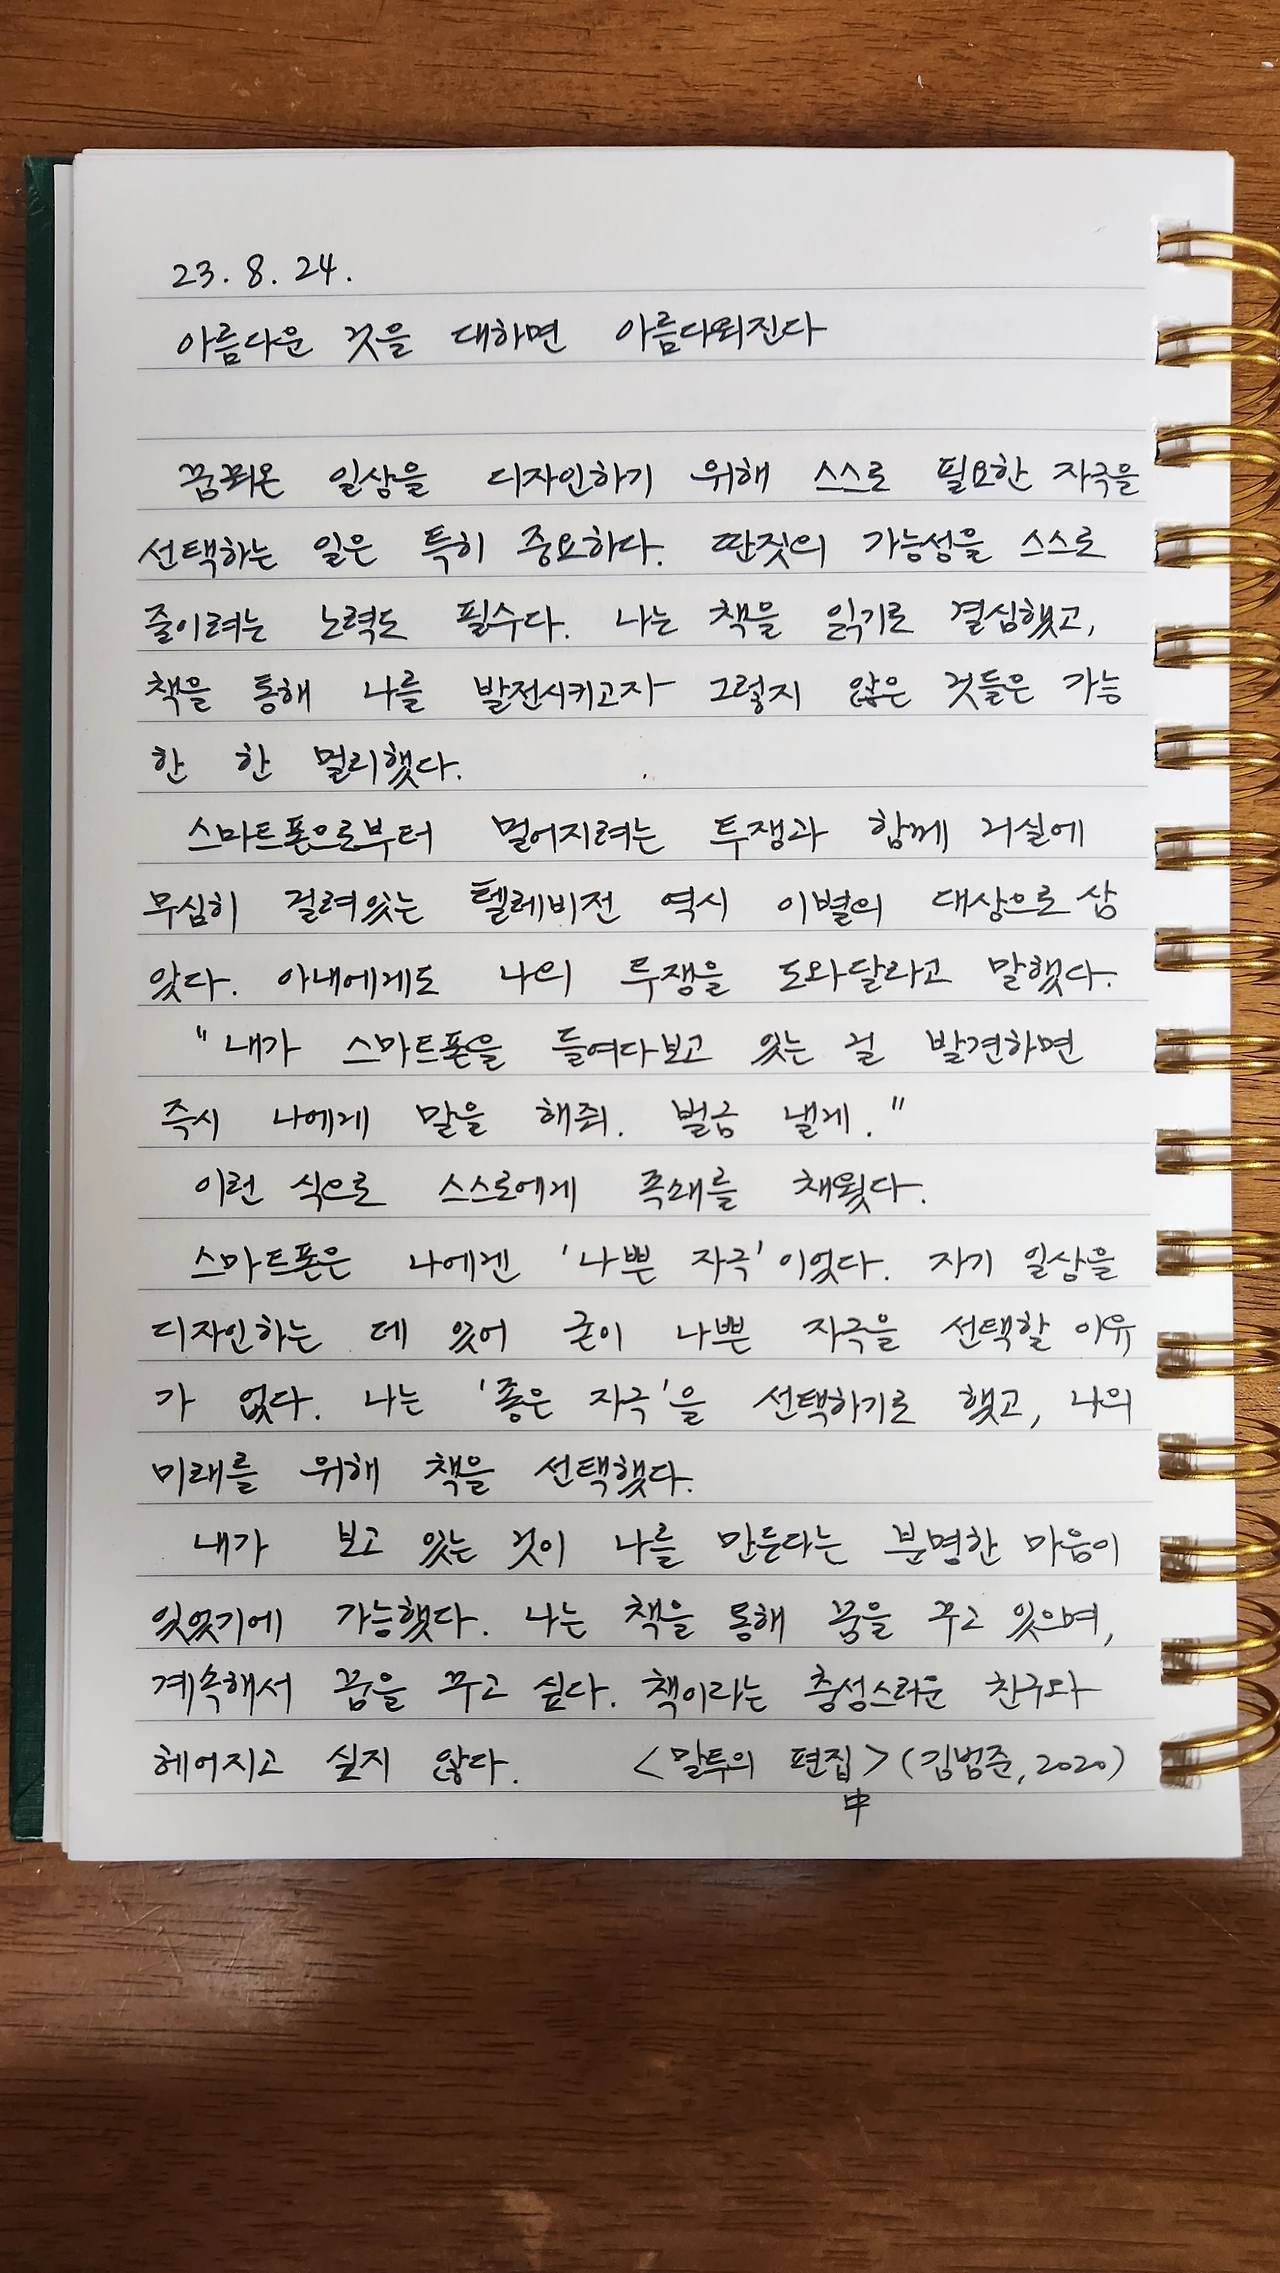 23. 8. 24.
아름다운 것을 대하면 아름다워진다
꿈꿔온 일상을 디자인하기 위해 스스로 필요한 자극을
선택하는 일은 특히 중요하다. 딴짓의 가능성을 스스로
줄이려는 노력도 필수다. 나는 책을 읽기로 결심했고,
책을 통해 나를 발전시키고자 그렇지 않은 것들은 가능
한 한 멀리했다.
스마트폰으로부터 멀어지려는 투쟁과 함께 거실에
무심히 걸려있는 텔레비전 역시 이별의 대상으로 삼
았다. 아내에게도 나의 투쟁을 도와달라고 말했다.
"내가 스마트폰을 들여다보고 있는 걸 발견하면
즉시 나에게 말을 해줘. 벌금 낼게."
이런 식으로 스스로에게 족쇄를 채웠다.
스마트폰은 나에겐 '나쁜 자극'이었다. 자기 일상을
디자인하는 데 있어 굳이 나쁜 자극을 선택할 이유
가 없다. 나는 '좋은 자극'을 선택하기로 했고, 나의
미래를 위해 책을 선택했다.
내가 보고 있는 것이 나를 만든다는 분명한 마음이
있었기에 가능했다. 나는 책을 통해 꿈을 꾸고 있으며,
계속해서 꿈을 꾸고 싶다. 책이라는 충성스러운 친구와
헤어지고 싶지 않다. <말투의 편집> (김범준, 2020)
中